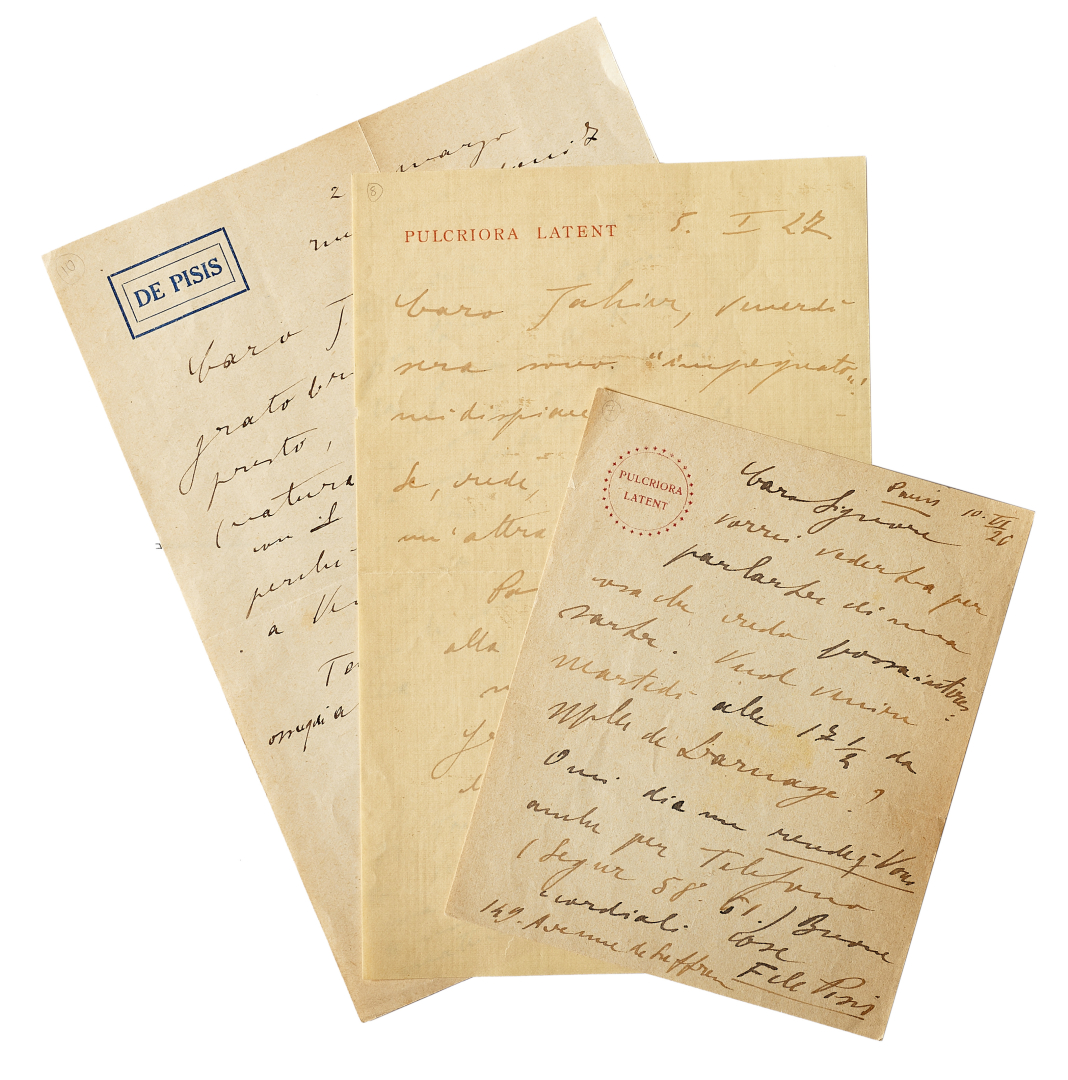 10
DE PISIS
2 marzo
Caro
grato
presto,
(natura
con il
perchè
a
omaggi a
8
PULCRIORA LATENT
5. I 27
Caro Tahier, Venerdì
sera sono "impegnato"
mi dispiace
Se, crede,
un'altra
alla
7
PULCRIORA
LATENT
Paris 10. VI 26
Caro Signore
vorrei vederla per
parlarle di una
cosa che credo possa interes
sarla. Vuol venire
martedì alle 17 1/2 da
Mlle de Darnage?
O mi dia un rendez Vous
anche per Telefono
(Segur 58. 61.) Buone
cordiali cose
149. Avenue de Suffren F de Pisis